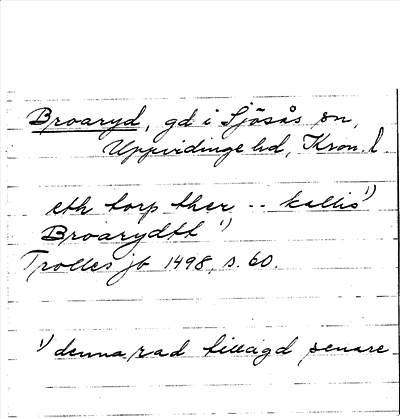 Broaryd, gd i Sjösås sn,
Uppvidinge hd, Kron. l
eth torp ther -- kallis 1)
Broarydtt 1)
Trolles jb 1498, s. 60.
1) denna rad tillagd senare